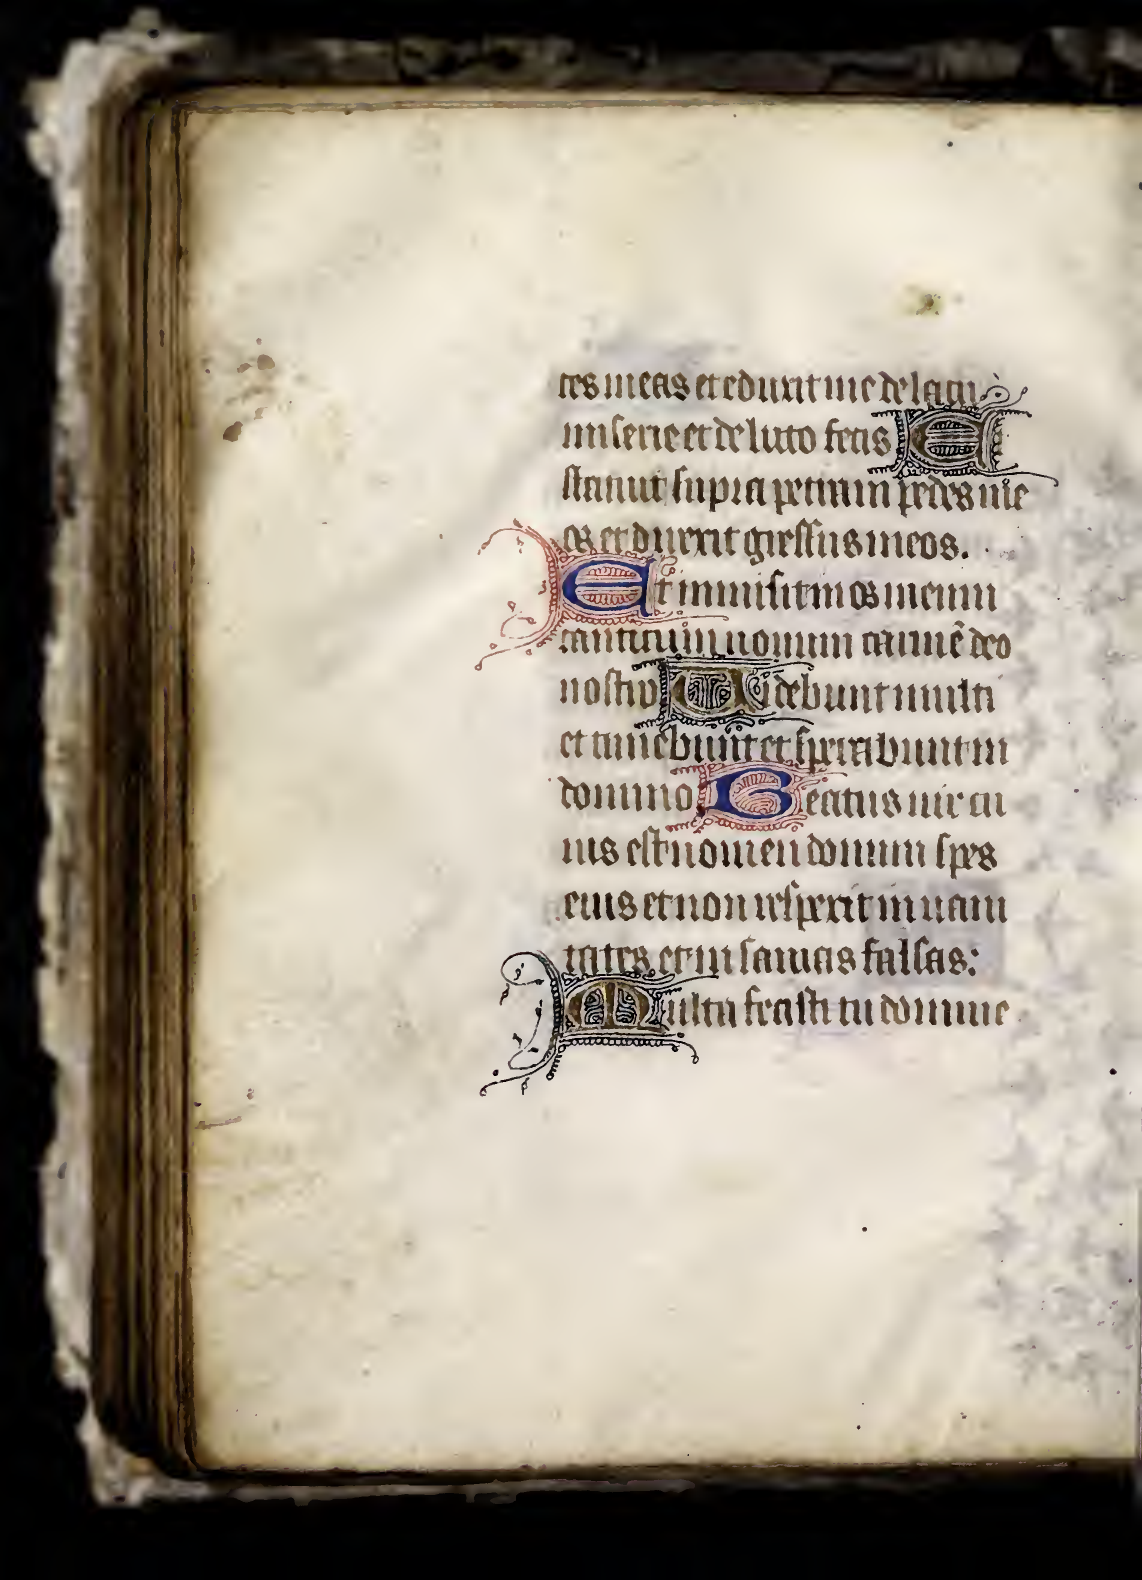 ces meas et eduxit me de lacu
miserie et de luto fecis Et
statuit supra petram pedes me
os et direxit gressus meos.
Et immisit in os meum
canticum nouum carmē deo
nostro Uidebunt multi
et timebunt et sperabunt in
domino Beatus uir cu
ius est nomen domini spes
eius et non respexit in uani
tates et insanias falsas:
Multa fecisti tu domine